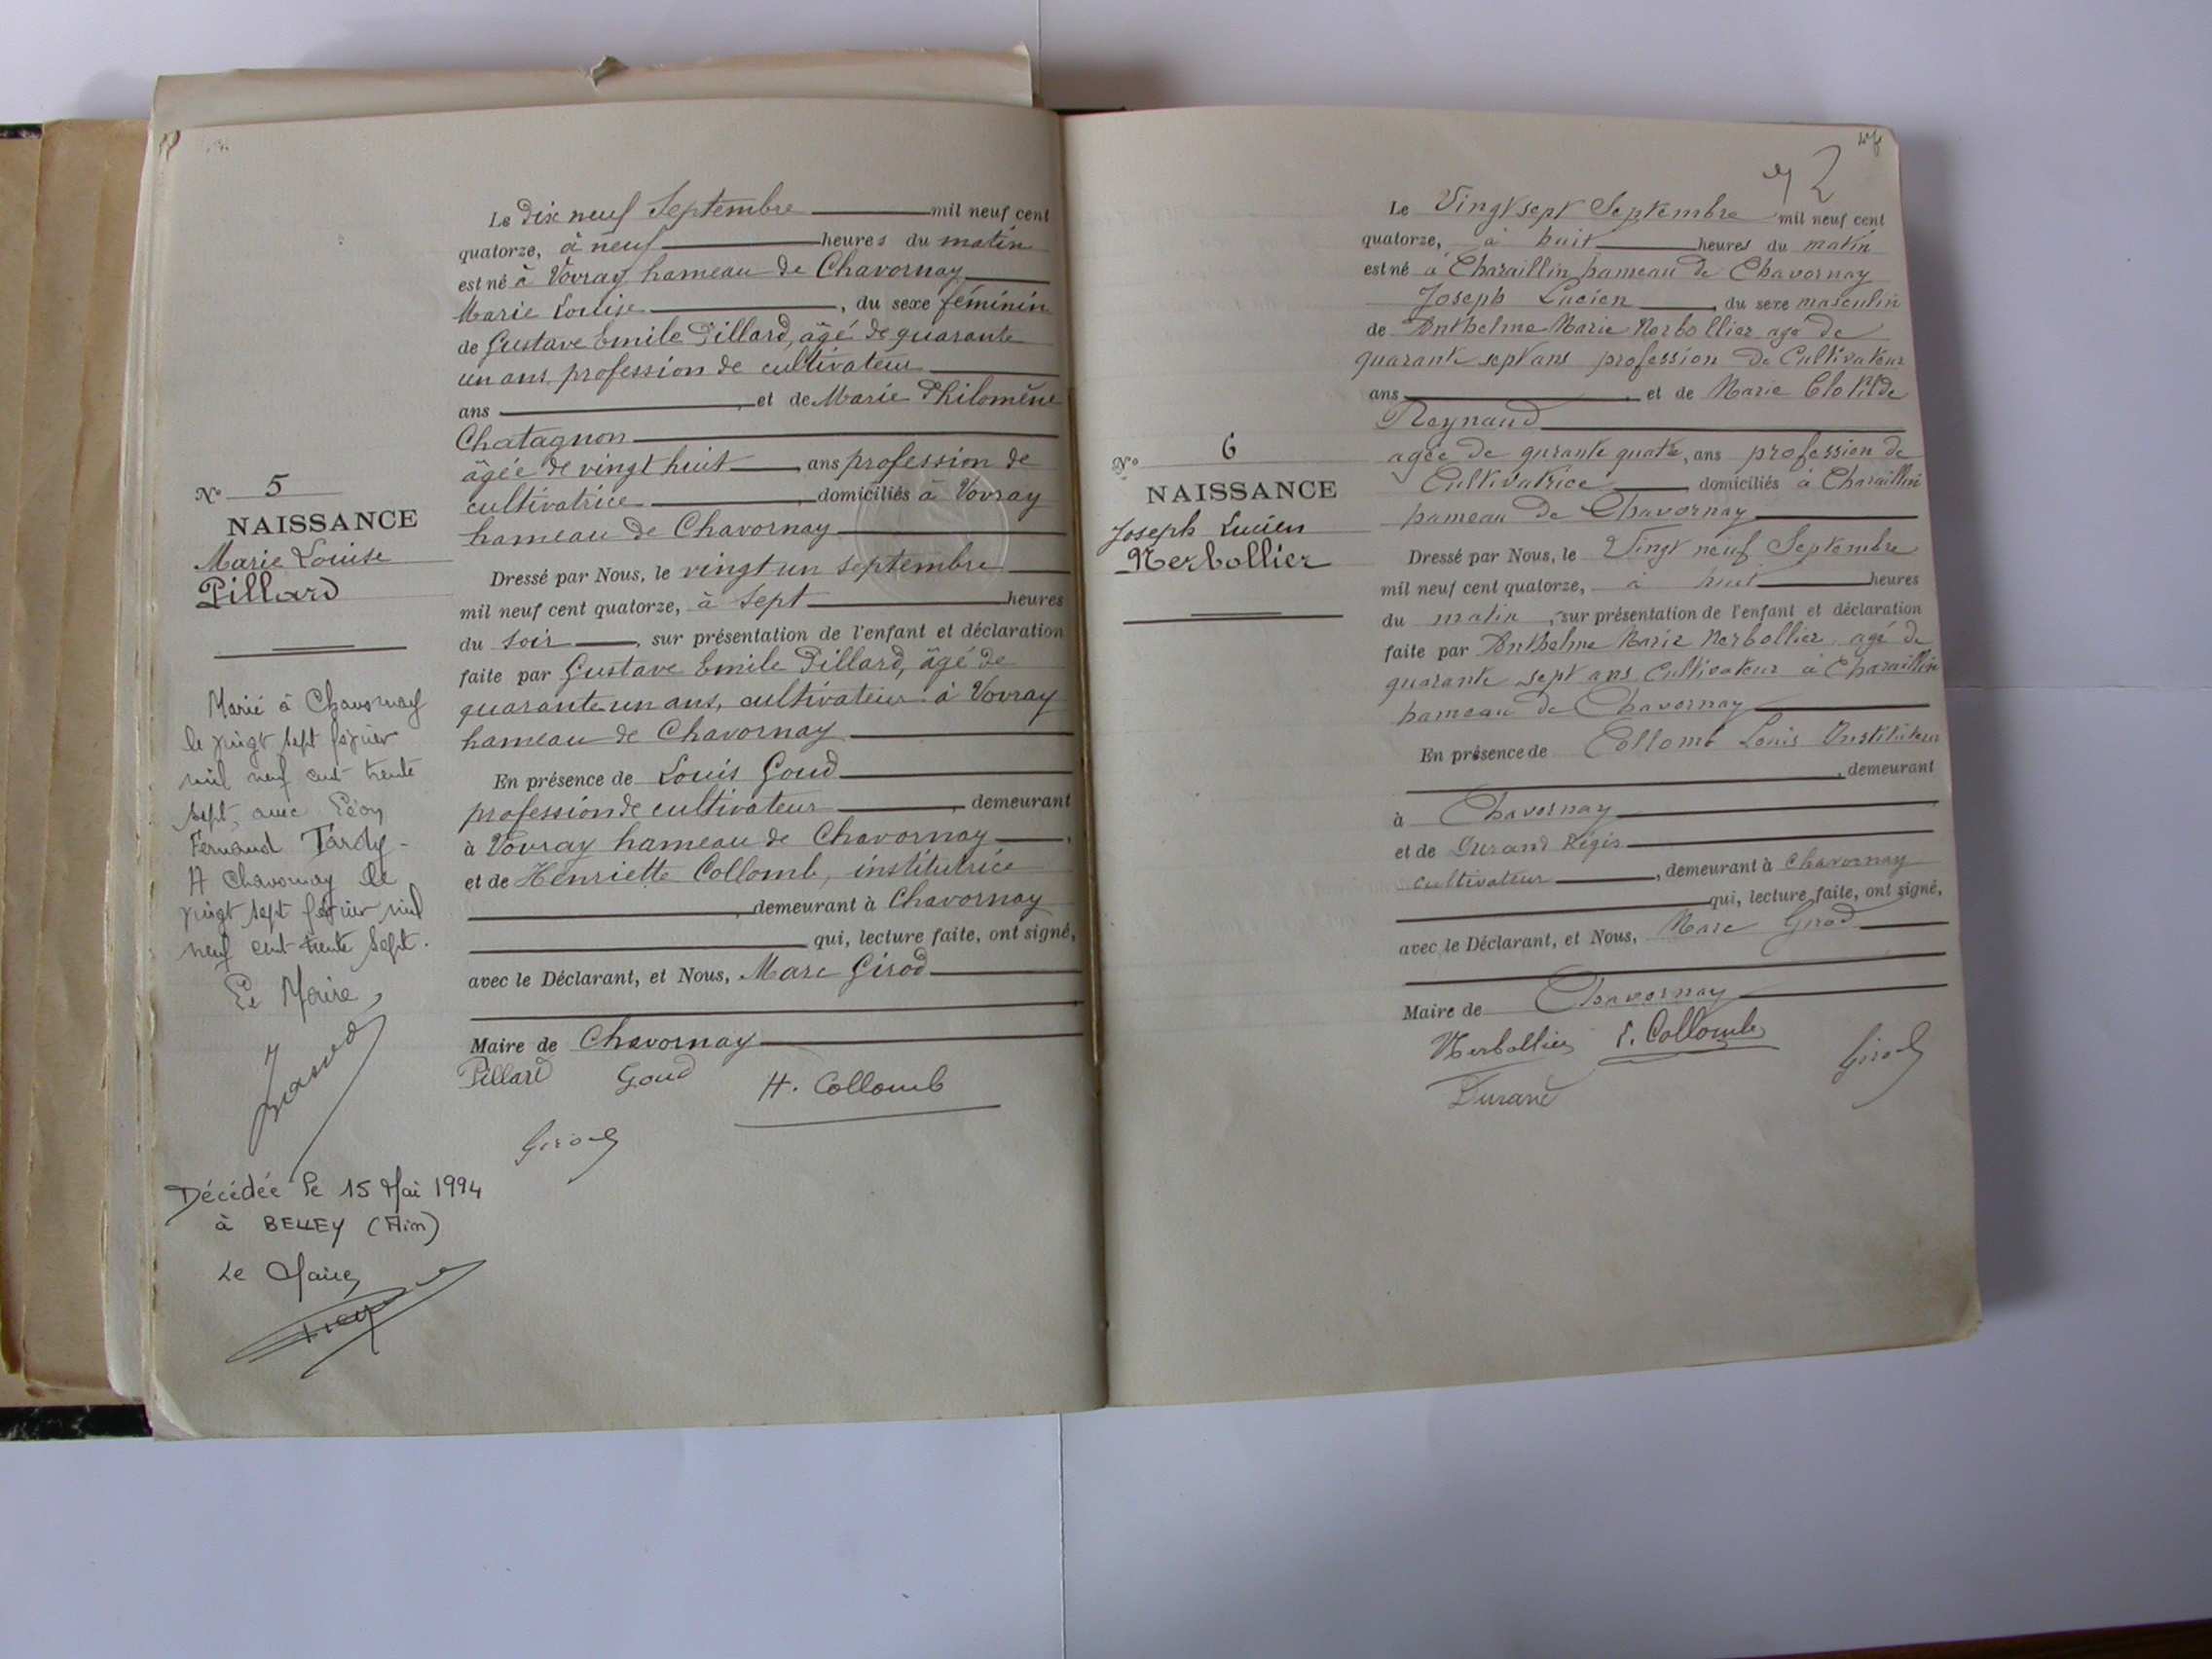 Le Dix neuf Septembre mil neuf cent
quatorze, à neuf heures du matin
est né à Vovray hameau de Chavornay
Marie Louise, du sexe féminin
de Gustave Emile Pillard, âgé de quarante
un ans, profession de cultivateur
ans, et de Marie Philomène
Chatagnon
âgée de vingt huit, ans profession de
cultivatrice, domiciliés à Vovray
hameau de Chavornay
Dressé par Nous, le vingt un septembre
mil neuf cent quatorze, à sept heures
du soir, sur présentation de l'enfant et déclaration
faite par Gustave Emile Pillard, âgé de
quarante un ans, cultivateur à Vovray
hameau de Chavornay
En présence de Louis Goud
profession de cultivateur, demeurant
à Vovray hameau de Chavornay,
et de Henriette Collomb, institutrice
, demeurant à Chavornay
qui, lecture faite, ont signé,
avec le Déclarant, et Nous, Marc Girod
Maire de Chavornay
Pillard Goud H. Collomb
Girod
No 5
NAISSANCE
Marie Louise
Pillard
Marié à Chavornay
le vingt sept février
mil neuf cent trente
sept, avec Léon
Fernand Tardy-
A Chavornay le
vingt sept février mil
neuf cent trente sept.
Le Maire,
Décédée le 15 Mai 1994
à BELLEY (Ain)
Le Maire,
2
Le Vingt sept Septembre mil neuf cent
quatorze, à huit heures du matin
est né à Charaillin hameau de Chavornay
Joseph Lucien, du sexe masculin
de Anthelme Marie Nerbollier agé de
quarante sept ans profession de Cultivateur
ans, et de Marie Clotilde
Reynaud
agée de qurante quatre, ans profession de
Cultivatrice domiciliés à Charaillin
hameau de Chavornay
Dressé par Nous, le Vingt neuf Septembre
mil neuf cent quatorze, à huit heures
du matin, sur présentation de l'enfant et déclaration
faite par Anthelme Marie Nerbollier agé de
quarante sept ans Cultivateur à Charaillin
hameau de Chavornay
En présence de Collomb Louis Instituteur
, demeurant
à Chavornay
et de Durand Régis
cultivateur, demeurant à Chavornay
qui, lecture faite, ont signé,
avec le Déclarant, et Nous, Marc Girod
Maire de Chavornay
Nerbollier L. Collomb
Girod
Durand
No 6
NAISSANCE
Joseph Lucien
Nerbollier